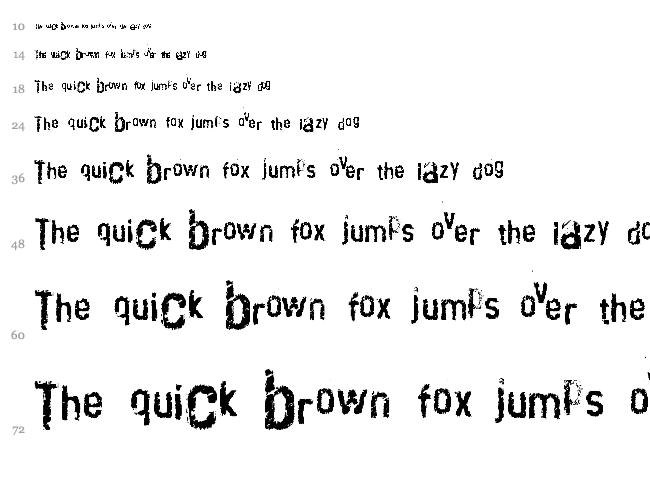 10 The quick brown fox jumps over the lazy dog
14 The quick brown fox jumps over the lazy dog
18 The quick brown fox jumps over the lazy dog
24 The quick brown fox jumps over the lazy dog
36 The quick brown fox jumps over the lazy dog
48 The quick brown fox jumps over the lazy do
60 The quick brown fox jumps over the
72 The quick brown fox jumps o